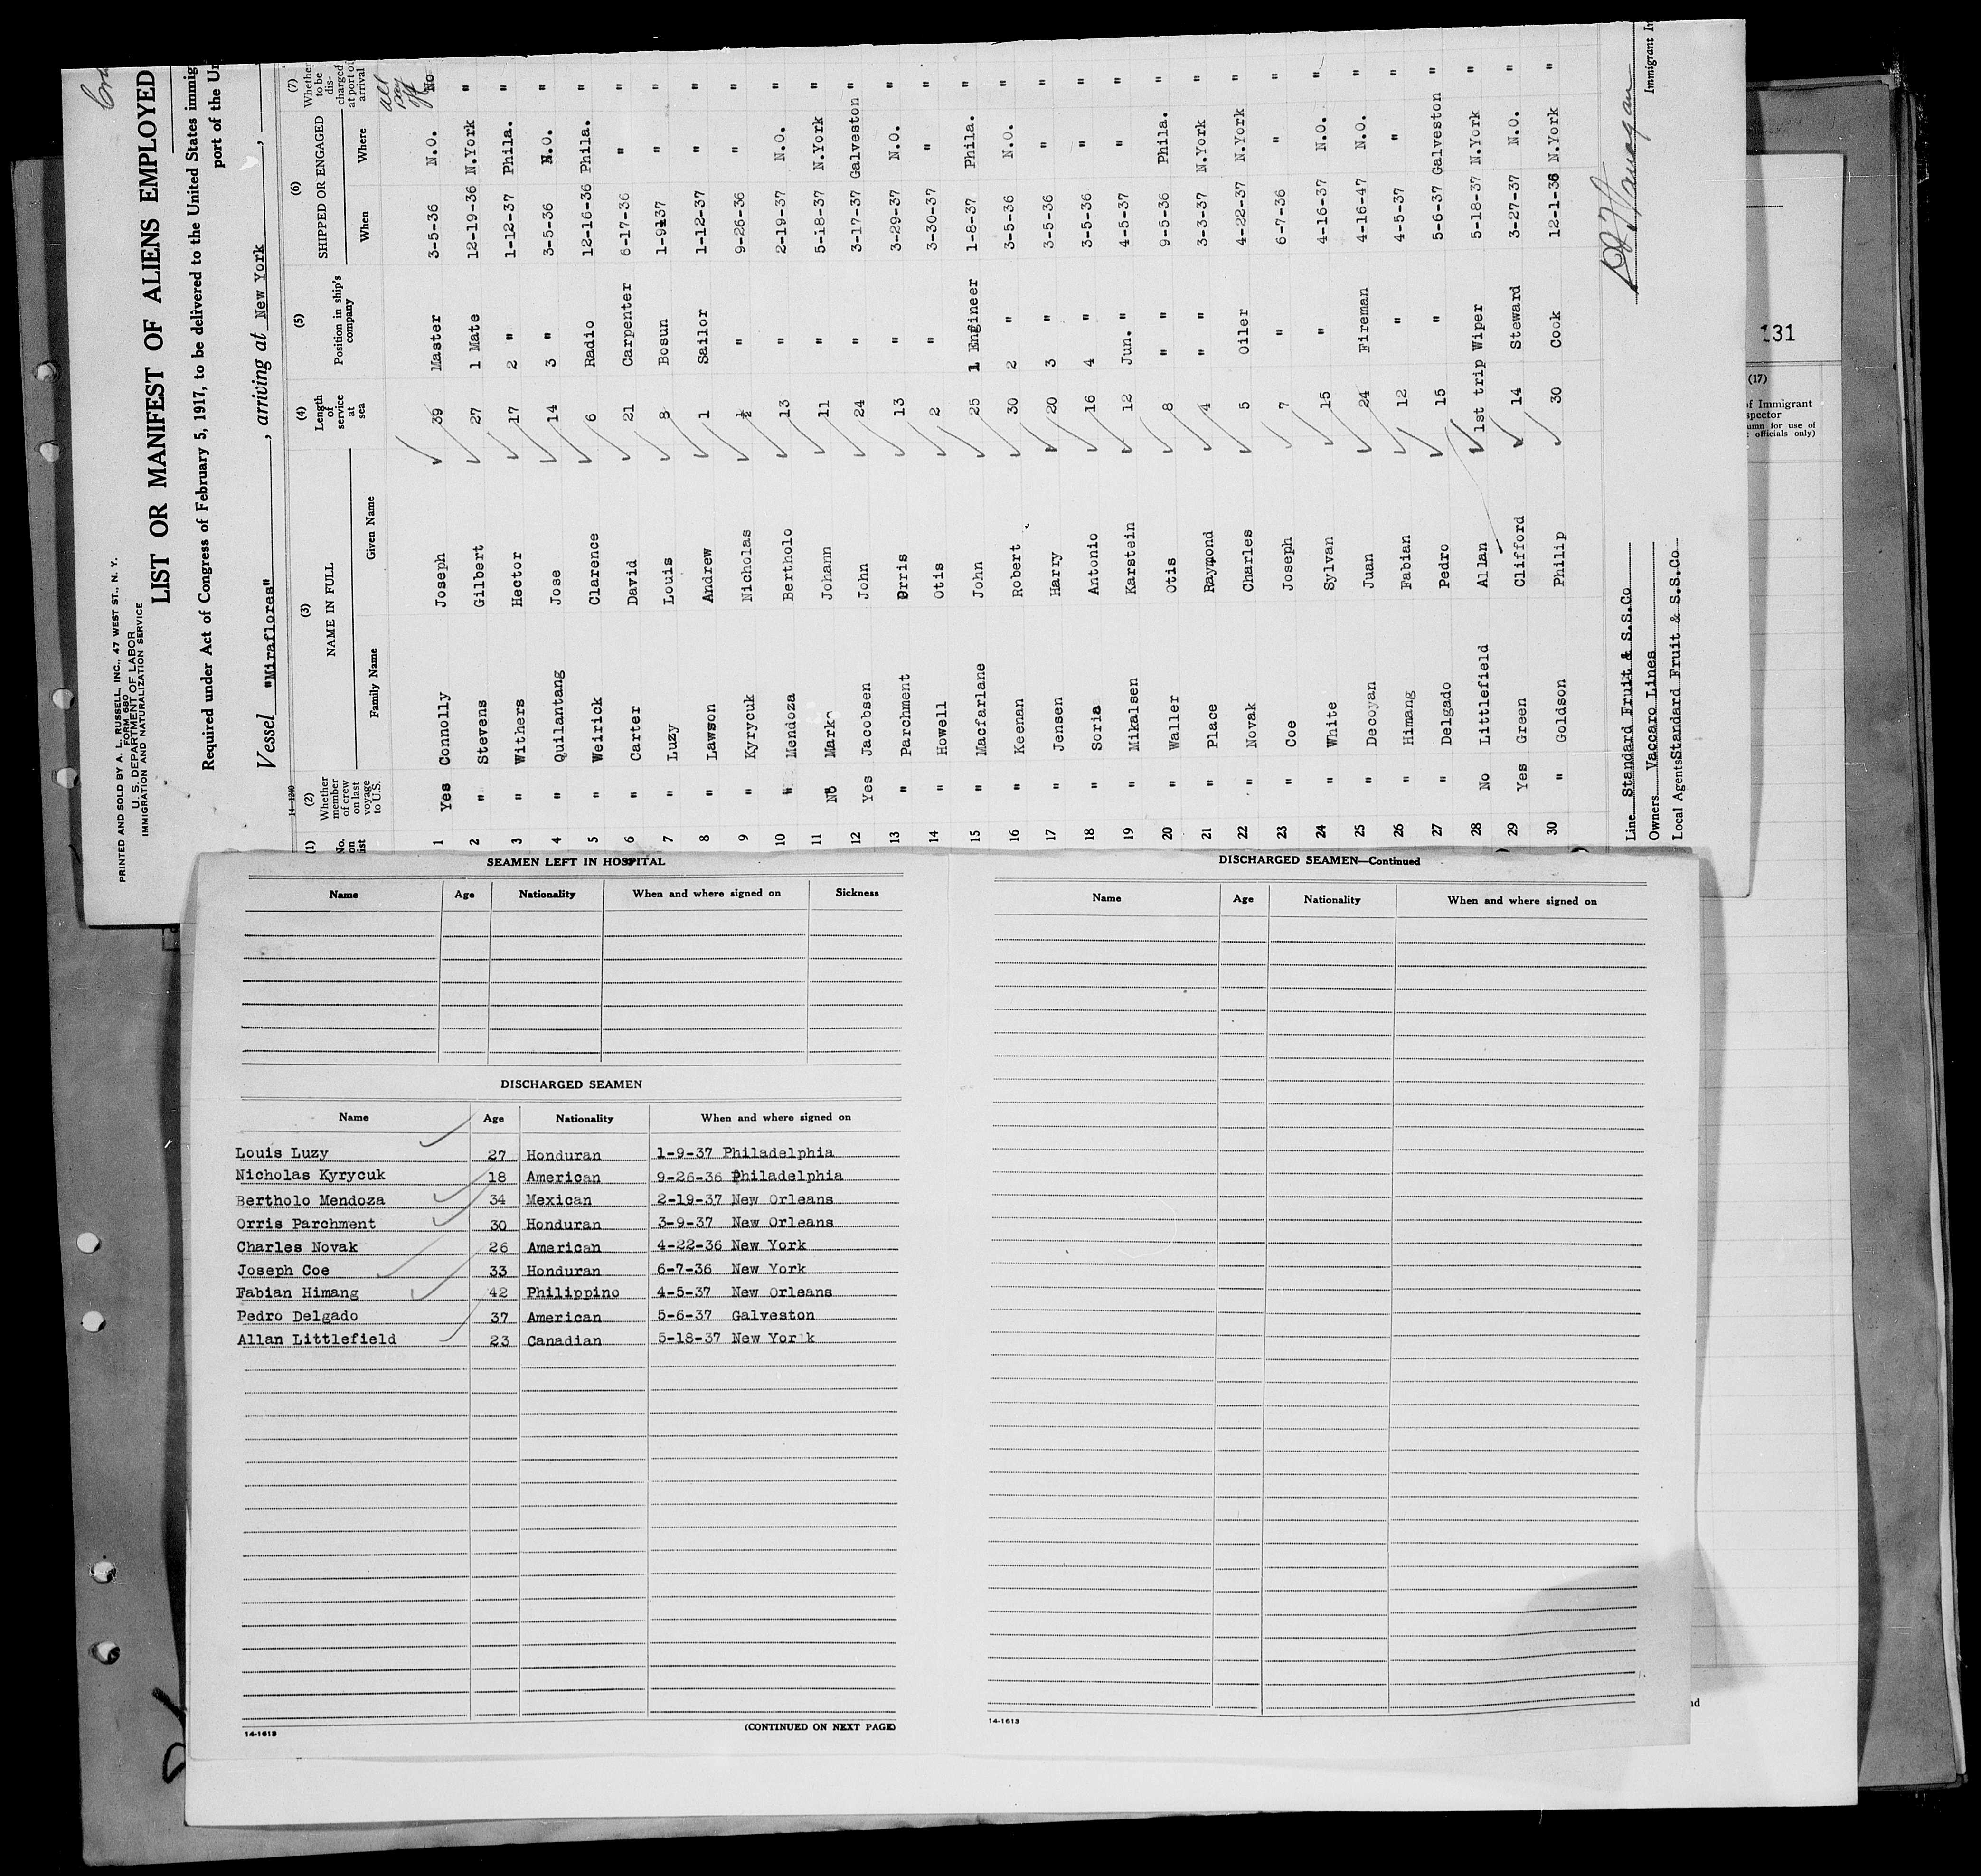 PRINTED AND SOLD BY A. L. RUSSELL, INC., 47 WEST ST., N. Y.
FORM 680
U. S. DEPARTMENT OF LABOR
IMMIGRATION AND NATURALIZATION SERVICE
LIST OR MANIFEST OF ALIENS EMPLOYED
Required under Act of Congress of February 5, 1917, to be delivered to the United States immig
port of the Un
Vessel "Miraflores" , arriving at New York ,
14-1240
(1) (2) (3) (4) (5) (6) (7)
No. on list Whether member of crew on last voyage to U.S. NAME IN FULL Length of service at sea Position in ship's company SHIPPED OR ENGAGED Whether to be discharged at port of arrival
Family Name Given Name When Where
all pay off
1 Yes Connolly Joseph 39 Master 3-5-36 N.O. No
2 " Stevens Gilbert 27 1 Mate 12-19-36 N.York "
3 " Withers Hector 17 2 " 1-12-37 Phila. "
4 " Quilantang Jose 14 3 " 3-5-36 N.O. "
5 " Weirick Clarence 6 Radio 12-16-36 Phila. "
6 " Carter David 21 Carpenter 6-17-36 " "
7 " Luzy Louis 8 Bosun 1-9-37 " "
8 " Lawson Andrew 1 Sailor 1-12-37 " "
9 " Kyrycuk Nicholas ½ " 9-26-36 " "
10 " Mendoza Bertholo 13 " 2-19-37 N.O. "
11 No Mark Johann 11 " 5-18-37 N.York "
12 Yes Jacobsen John 24 " 3-17-37 Galveston "
13 " Parchment Orris 13 " 3-29-37 N.O. "
14 " Howell Otis 2 " 3-30-37 " "
15 " Macfarlane John 25 1 Engineer 1-8-37 Phila. "
16 " Keenan Robert 30 2 " 3-5-36 N.O. "
17 " Jensen Harry 20 3 " 3-5-36 " "
18 " Soria Antonio 16 4 " 3-5-36 " "
19 " Mikalsen Karstein 12 Jun. " 4-5-37 " "
20 " Waller Otis 8 " " 9-5-36 Phila. "
21 " Place Raymond 4 " " 3-3-37 N.York "
22 " Novak Charles 5 Oiler 4-22-37 N.York "
23 " Coe Joseph 7 " 6-7-36 " "
24 " White Sylvan 15 " 4-16-37 N.O. "
25 " Decoyan Juan 24 Fireman 4-16-47 N.O. "
26 " Himang Fabian 12 " 4-5-37 " "
27 " Delgado Pedro 15 " 5-6-37 Galveston "
28 No Littlefield Allan 1st trip Wiper 5-18-37 N.York "
29 Yes Green Clifford 14 Steward 3-27-37 N.O. "
30 " Goldson Philip 30 Cook 12-1-36 N.York "
Line Standard Fruit & S.S.Co
Owners Vaccaro Lines
Local Agents Standard Fruit & S.S.Co
Immigrant In
131
(17)
of Immigrant
spector
umn for use of
officials only)
nd
SEAMEN LEFT IN HOSPITAL
Name Age Nationality When and where signed on Sickness
DISCHARGED SEAMEN
Name Age Nationality When and where signed on
Louis Luzy 27 Honduran 1-9-37 Philadelphia
Nicholas Kyrycuk 18 American 9-26-36 Philadelphia
Bertholo Mendoza 34 Mexican 2-19-37 New Orleans
Orris Parchment 30 Honduran 3-9-37 New Orleans
Charles Novak 26 American 4-22-36 New York
Joseph Coe 33 Honduran 6-7-36 New York
Fabian Himang 42 Philippino 4-5-37 New Orleans
Pedro Delgado 37 American 5-6-37 Galveston
Allan Littlefield 23 Canadian 5-18-37 New Yor k
14-1613
(CONTINUED ON NEXT PAGE)
DISCHARGED SEAMEN—Continued
Name Age Nationality When and where signed on
14-1613